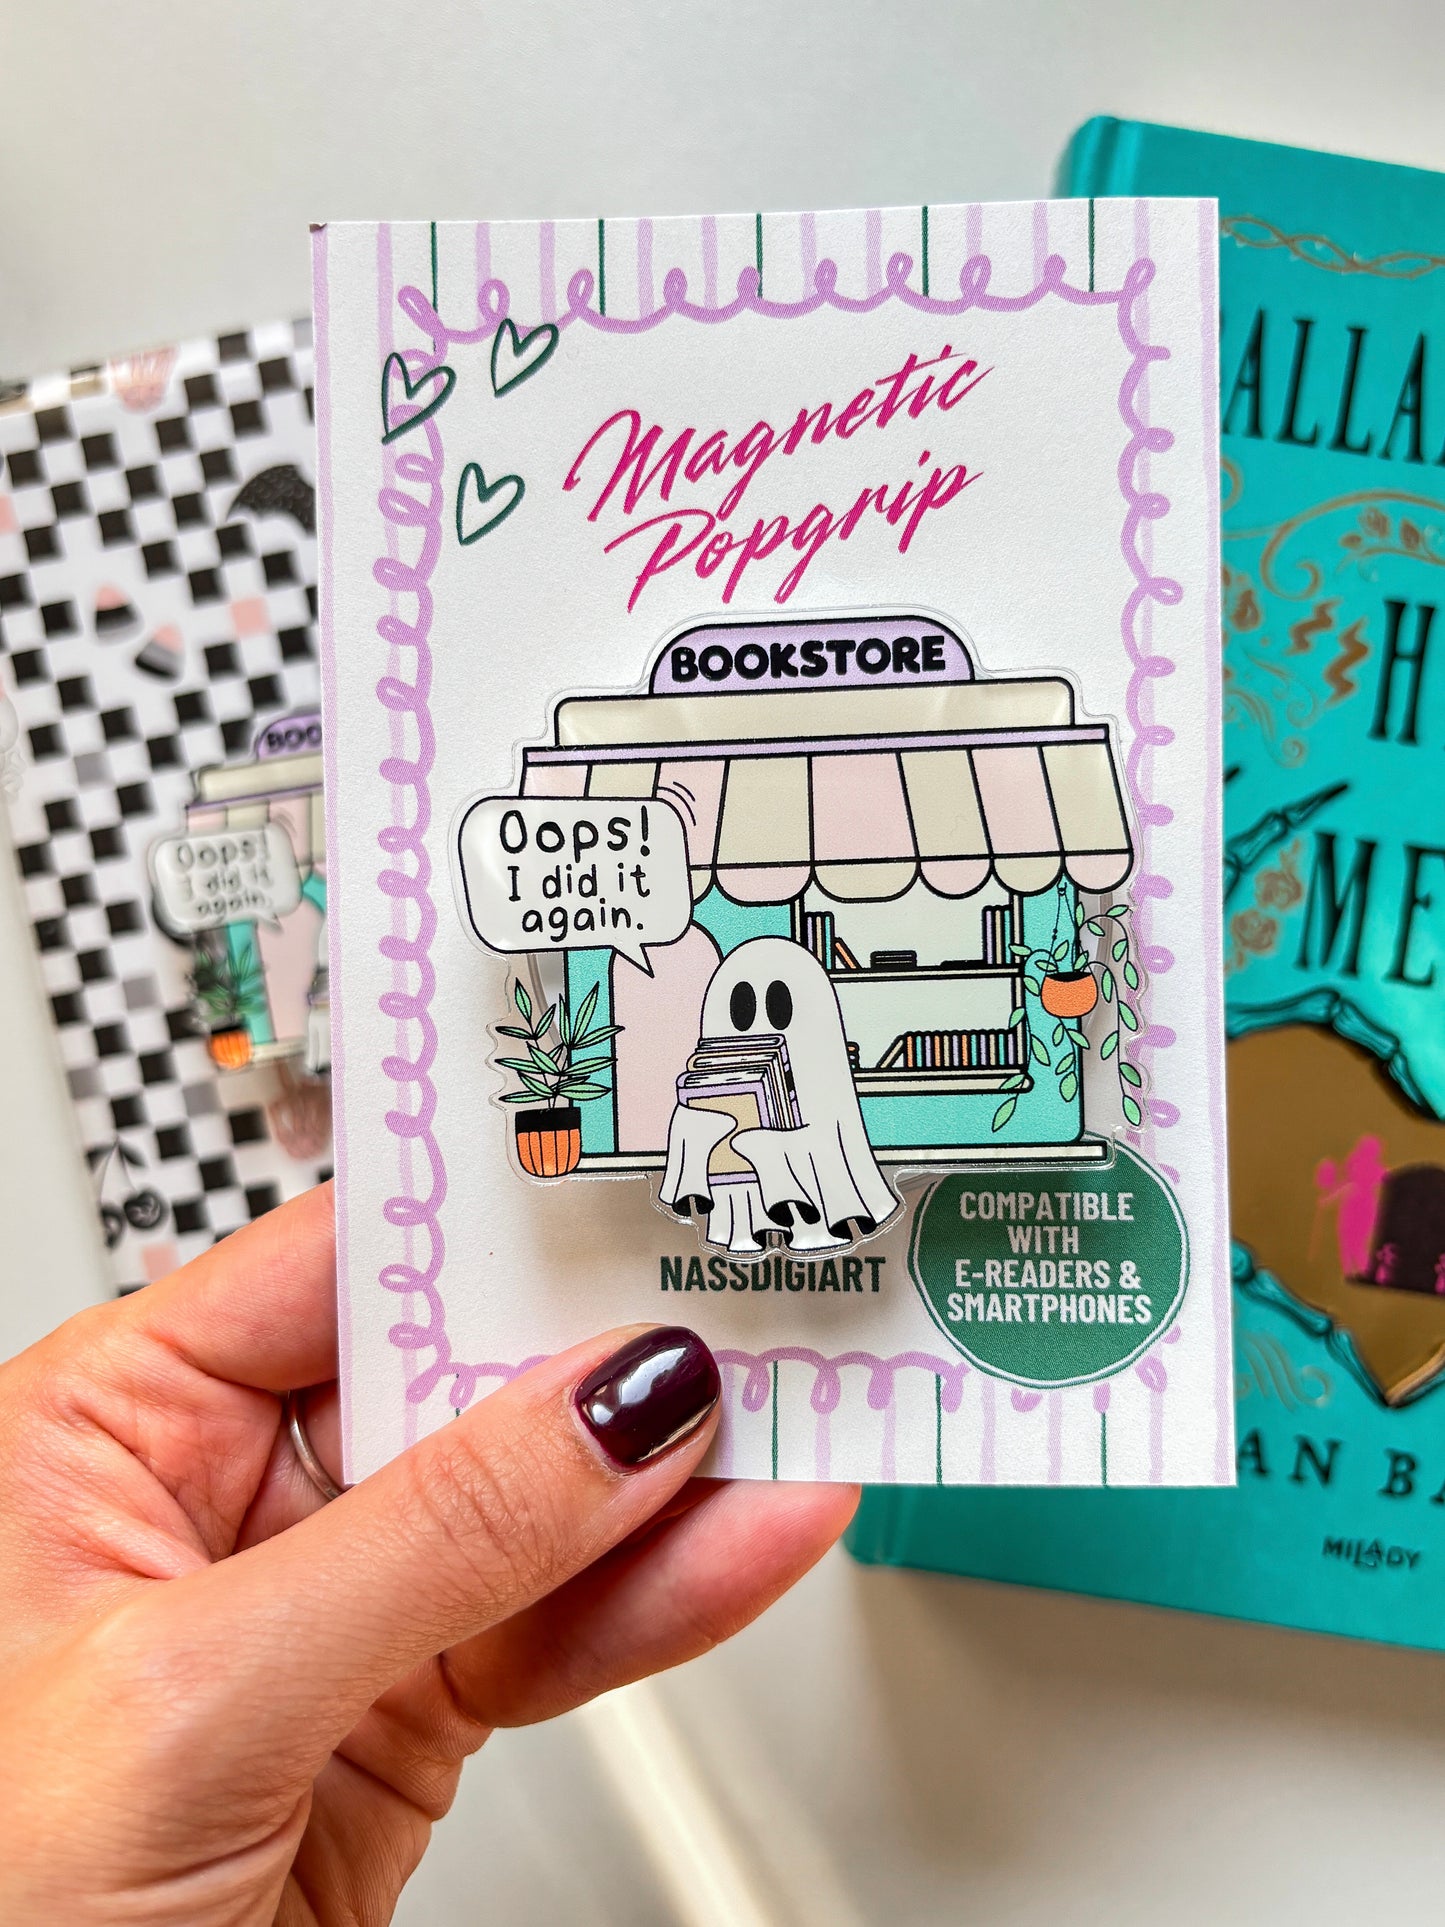 Magnetic
Popgrip
BOOKSTORE
Oops!
I did it
again.
NASSDIGIART
COMPATIBLE
WITH
E-READERS &
SMARTPHONES
BOO
Oops!
I did it
again.
ALLA
H
ME
AN BA
MILADY